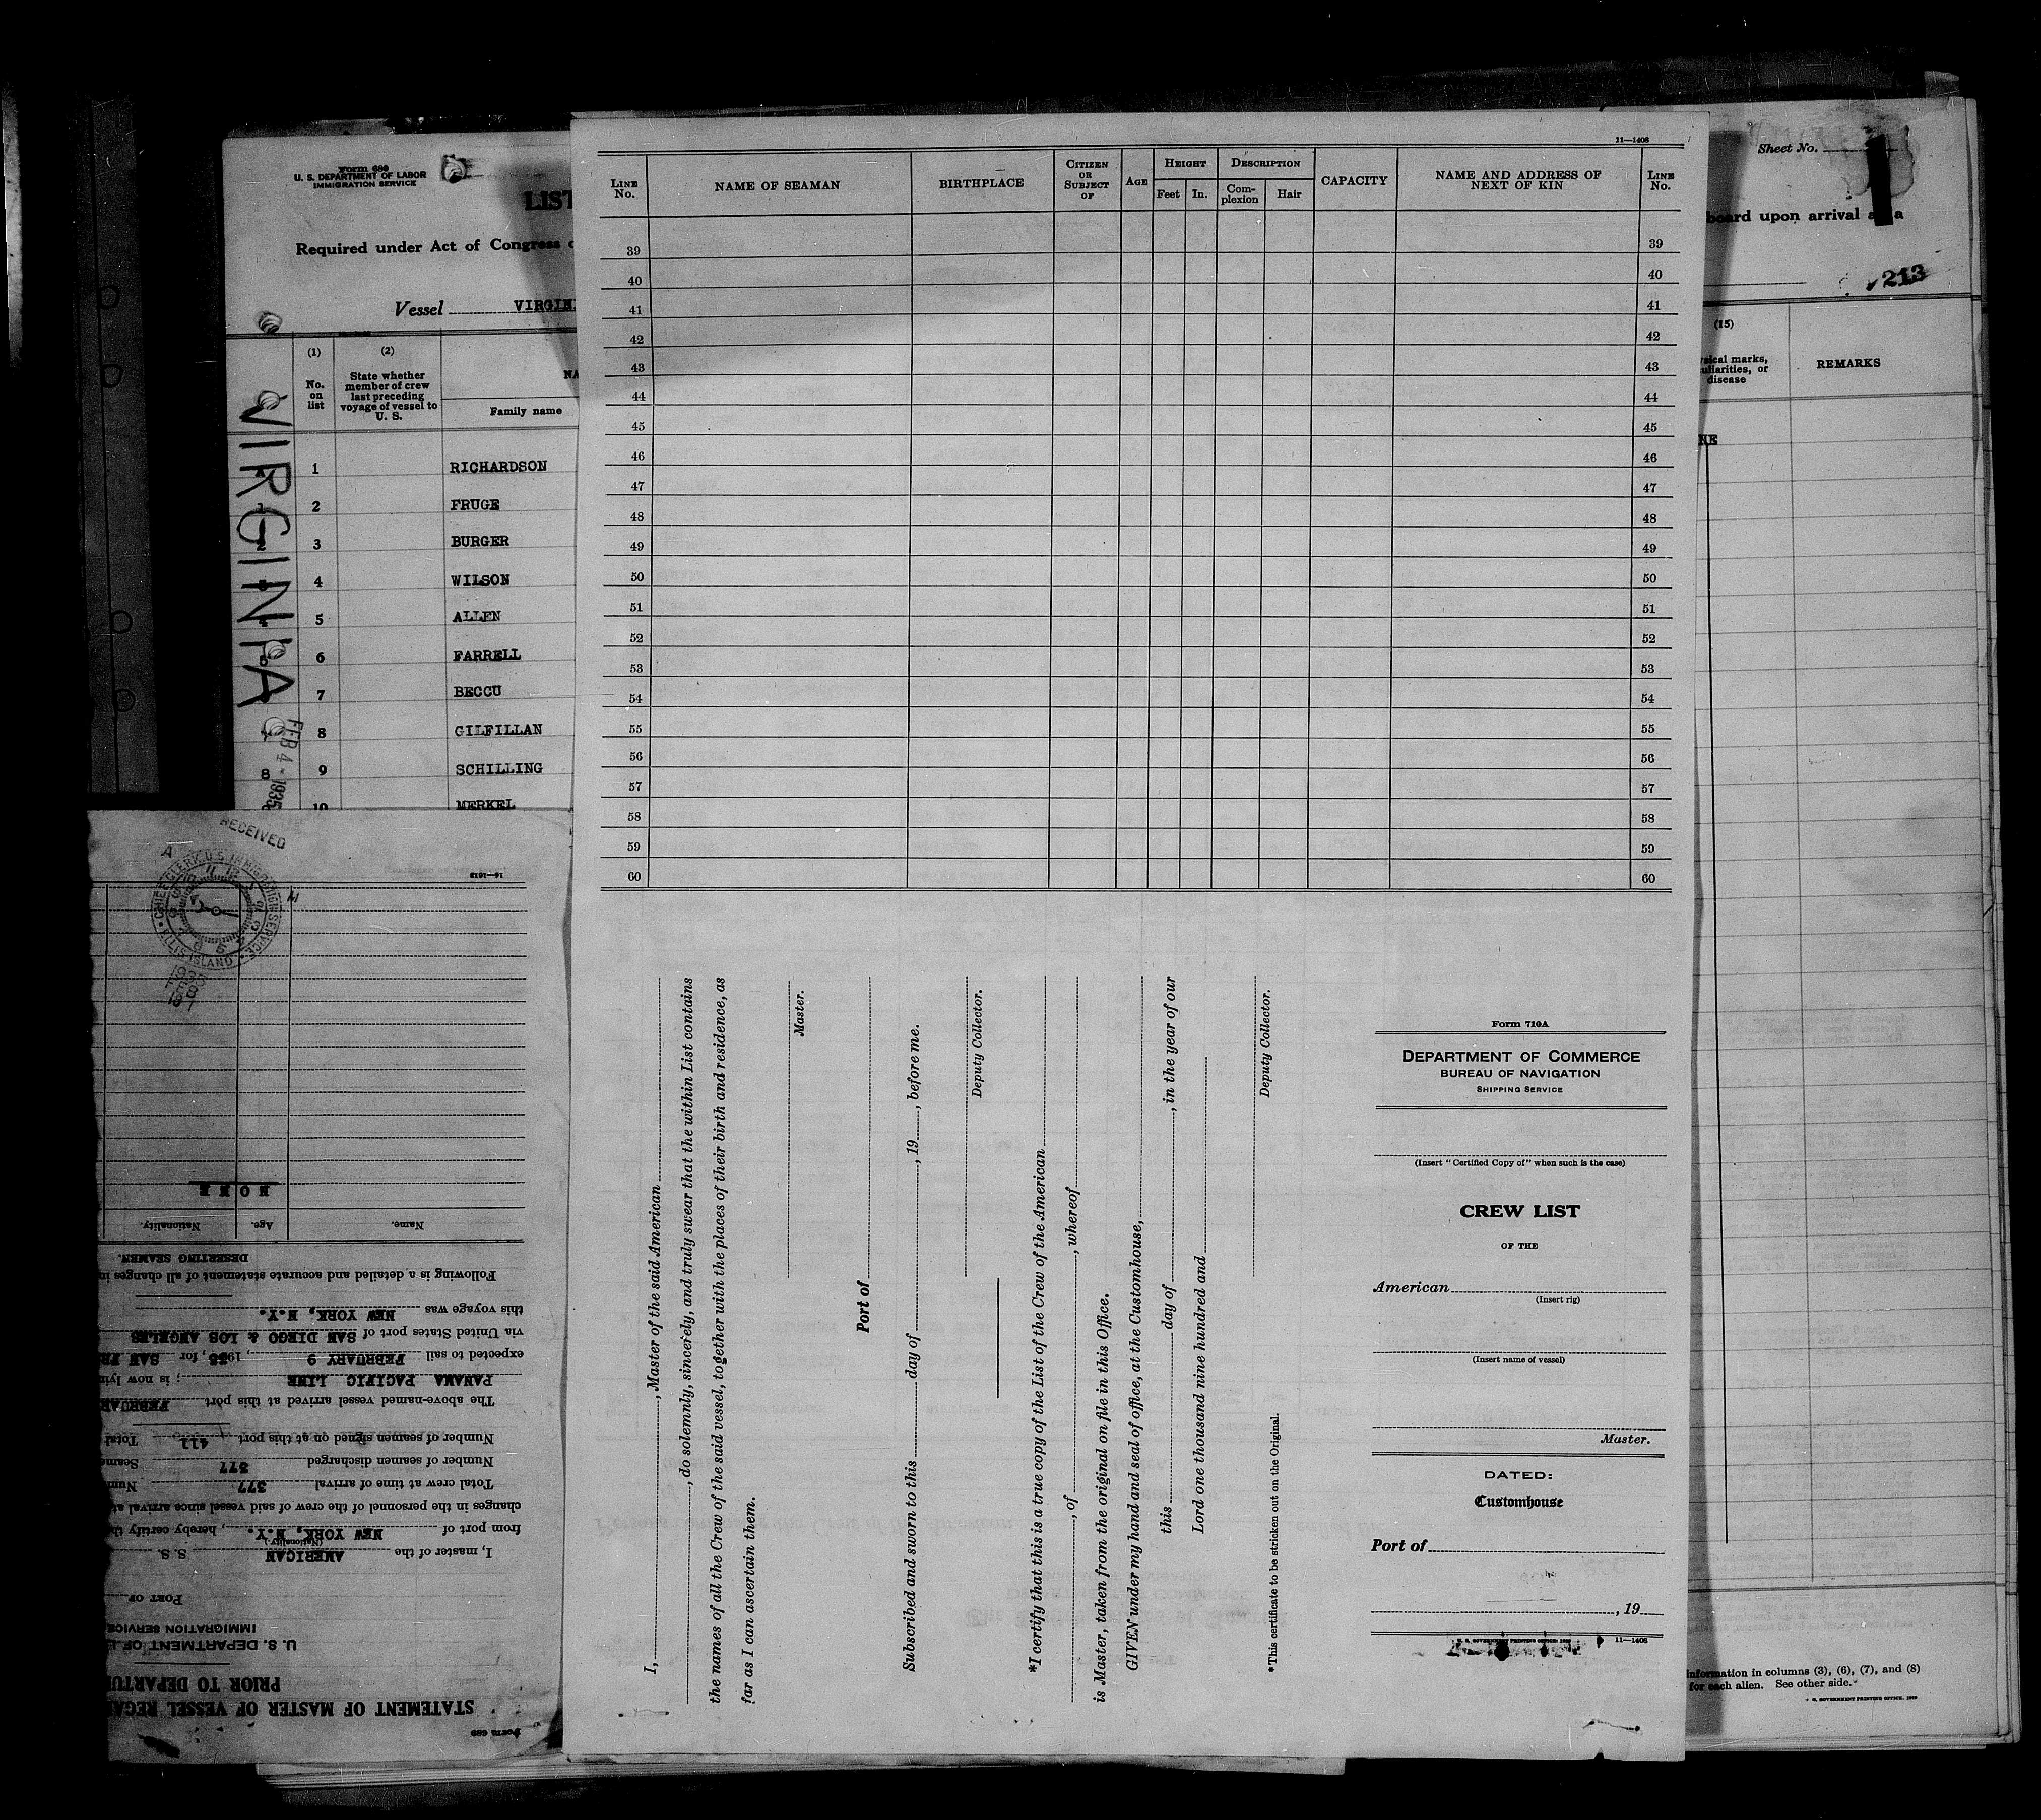 Form 680
U. S. DEPARTMENT OF LABOR
IMMIGRATION SERVICE
LIST
Required under Act of Congress
Vessel VIRGIN
(1)
No.
on
list
(2)
State whether
member of crew
last preceding
voyage of vessel to
U. S.
Family name
1 RICHARDSON
2 FRUGE
3 BURGER
4 WILSON
5 ALLEN
6 FARRELL
7 BECCU
8 GILFILLAN
9 SCHILLING
10 MERKEL
VIRGINIA
FEB 4 - 1935
8
11—1408
LINE No. NAME OF SEAMAN BIRTHPLACE CITIZEN OR SUBJECT OF AGE HEIGHT Feet In. DESCRIPTION Complexion Hair CAPACITY NAME AND ADDRESS OF NEXT OF KIN LINE No.
39 39
40 40
41 41
42 42
43 43
44 44
45 45
46 46
47 47
48 48
49 49
50 50
51 51
52 52
53 53
54 54
55 55
56 56
57 57
58 58
59 59
60 60
Sheet No.
board upon arrival at a
213
(15)
marks,
liarities, or
disease
REMARKS
NE
information in columns (3), (6), (7), and (8)
for each alien. See other side.
GOVERNMENT PRINTING OFFICE
I, , Master of the said American
, do solemnly, sincerely, and truly swear that the within List contains
the names of all the Crew of the said vessel, together with the places of their birth and residence, as
far as I can ascertain them.
Master.
Port of
Subscribed and sworn to this day of , 19 , before me.
Deputy Collector.
*I certify that this is a true copy of the List of the Crew of the American
, of , whereof
is Master, taken from the original on file in this Office.
GIVEN under my hand and seal of office, at the Customhouse,
this day of , in the year of our
Lord one thousand nine hundred and
Deputy Collector.
*This certificate to be stricken out on the Original.
Form 710A
DEPARTMENT OF COMMERCE
BUREAU OF NAVIGATION
SHIPPING SERVICE
(Insert "Certified Copy of" when such is the case)
CREW LIST
OF THE
American
(Insert rig)
(Insert name of vessel)
Master.
DATED:
Customhouse
Port of
, 19
11—1408
RECEIVED
CHIEF CLERK U.S. IMMIGRATION SERVICE
ELLIS ISLAND
Form 689
STATEMENT OF MASTER OF VESSEL REGA
PRIOR TO DEPARTU
U. S. DEPARTMENT OF
IMMIGRATION SERVICE
PORT OF
I, master of the AMERICAN S. S.
(Nationality)
from port of NEW YORK, N.Y. , hereby certify th
changes in the personnel of the crew of said vessel since arrival at
Total crew at time of arrival 377 Num
Number of seamen discharged 377 Seame
Number of seamen signed on at this port 411 Total
The above-named vessel arrived at this port FEBRUAR
PANAMA PACIFIC LINE ; is now lyin
expected to sail FEBRUARY 9 , 1935, for SAN FR
via United States port of SAN DIEGO & LOS ANGELES
this voyage was NEW YORK, N.Y.
Following is a detailed and accurate statement of all changes in
DESERTING SEAMEN.
Name. Age. Nationality.
NONE